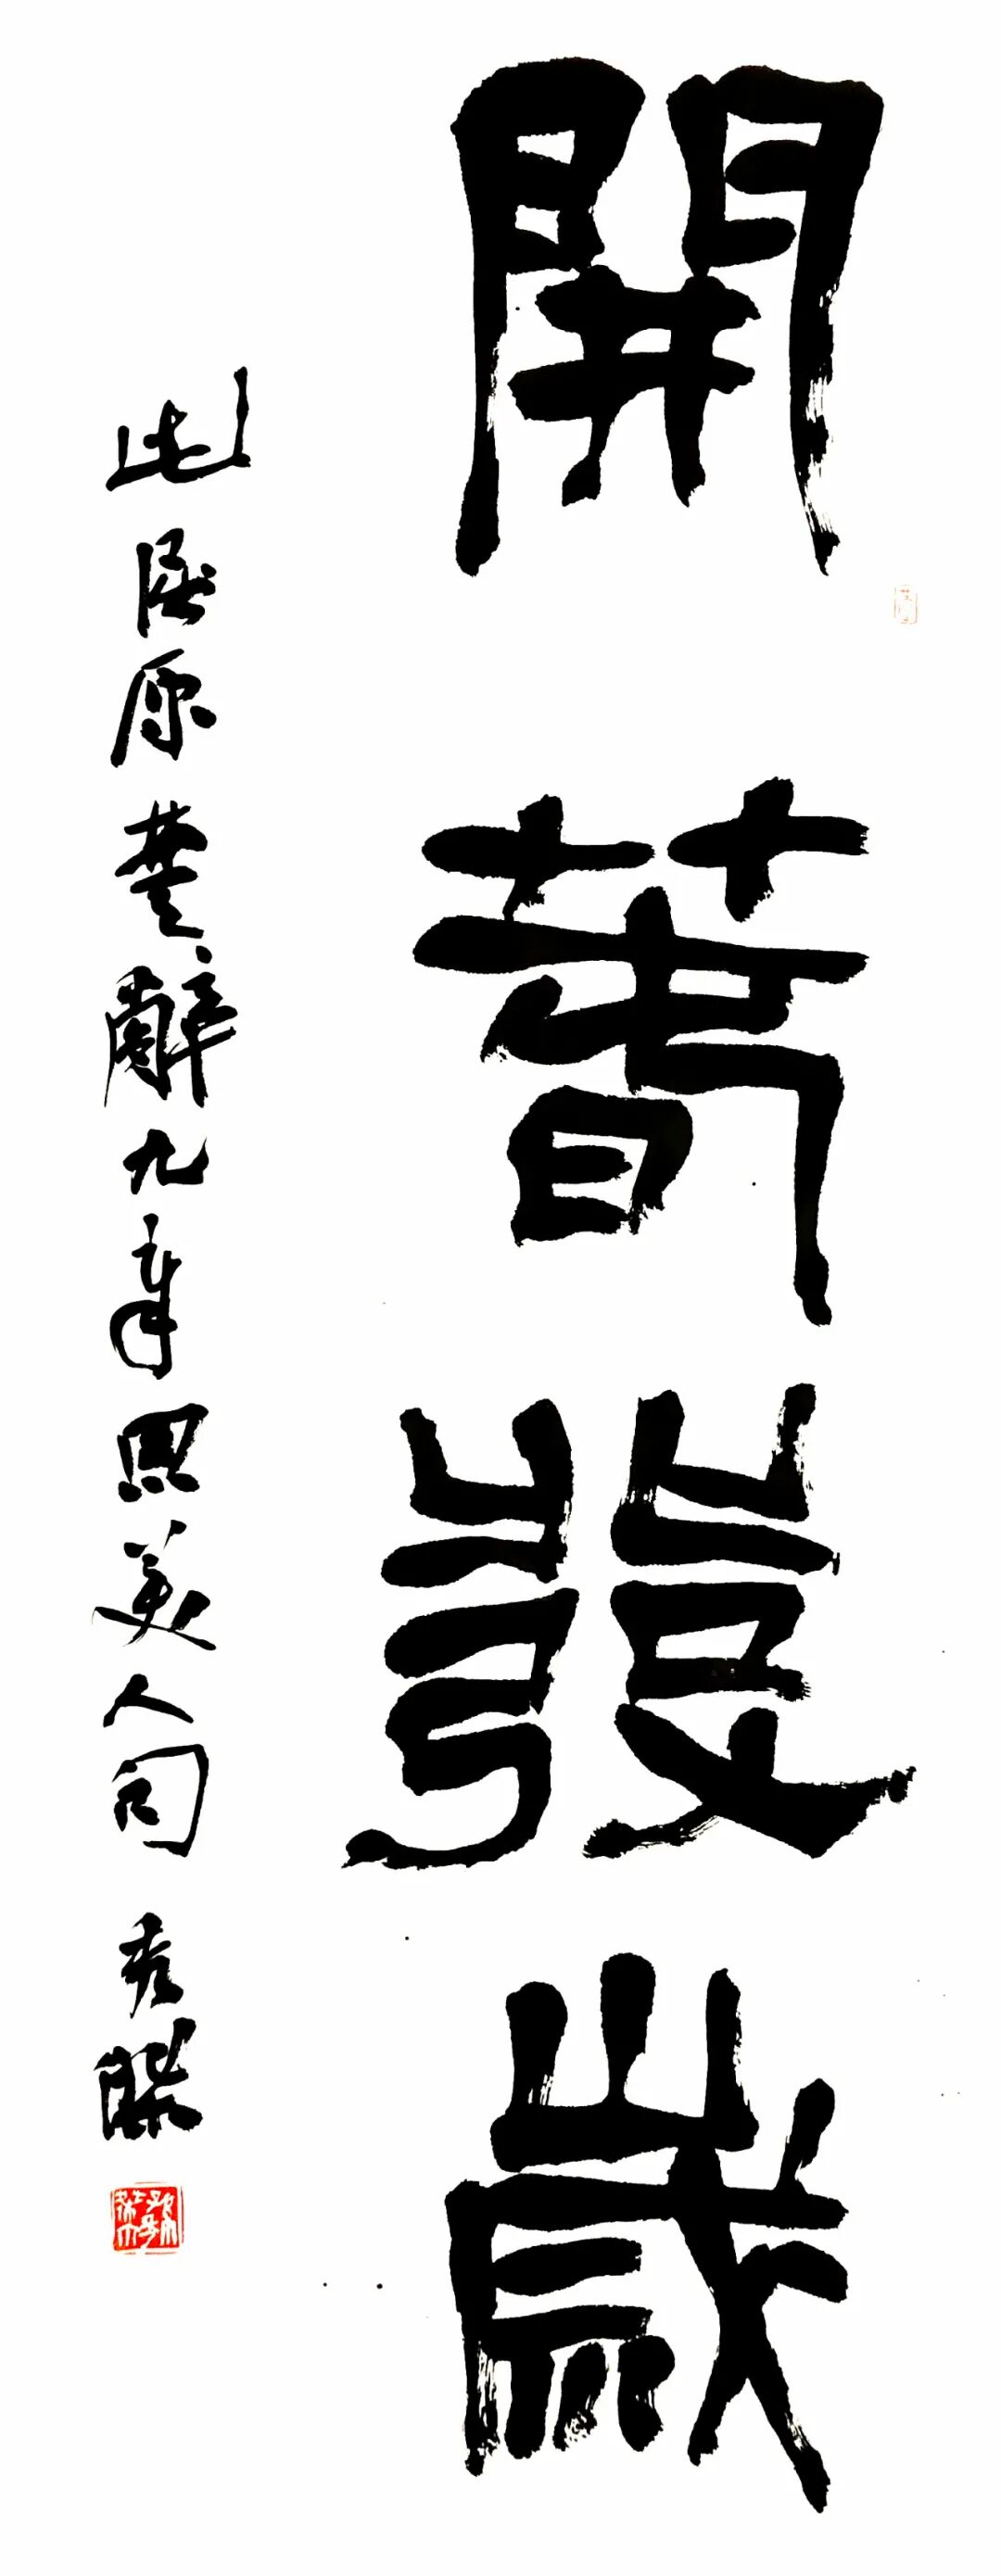 開春發歲
此屈原楚辭九章思美人句